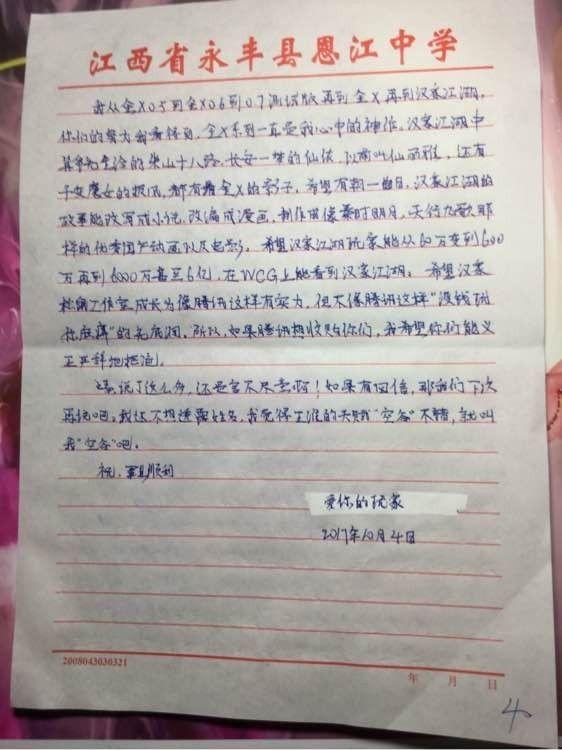 江西省永丰县恩江中学
我从金X0.5到金X0.6到0.7测试版再到金X再到汉家江湖，
你们的努力我看得见，金X系列一直是我心中的神作。汉家江湖中
十八路，长安一梦的仙侠，以前叫仙丽雅，还有
魔女的投区，都有着金X的影子，希望有朝一曲日，汉家江湖的
故事能改写成小说，改编成漫画，制作成像秦时明月，天行九歌那
样的优秀国产动画以及电影。希望汉家江湖玩家能从60万变到600
万再到6000万甚至6亿，在WCG上能看到汉家江湖。希望汉家
松鼠工作室成长为像腾讯这样有实力，但不像腾讯这样“没钱玩
的无底洞。所以，如果腾讯想收购你们，我希望你们能义
正严辞地拒绝。
说了这么多，还是言不尽意啊！如果有回信，那我们下次
再说吧，我还不想透露姓名，我觉得王淮的天赋“空备”不错，就叫
我“空备”吧。
祝：事业顺利
爱你的玩家
2017年10月4日
2008043030321
年 月 日
4